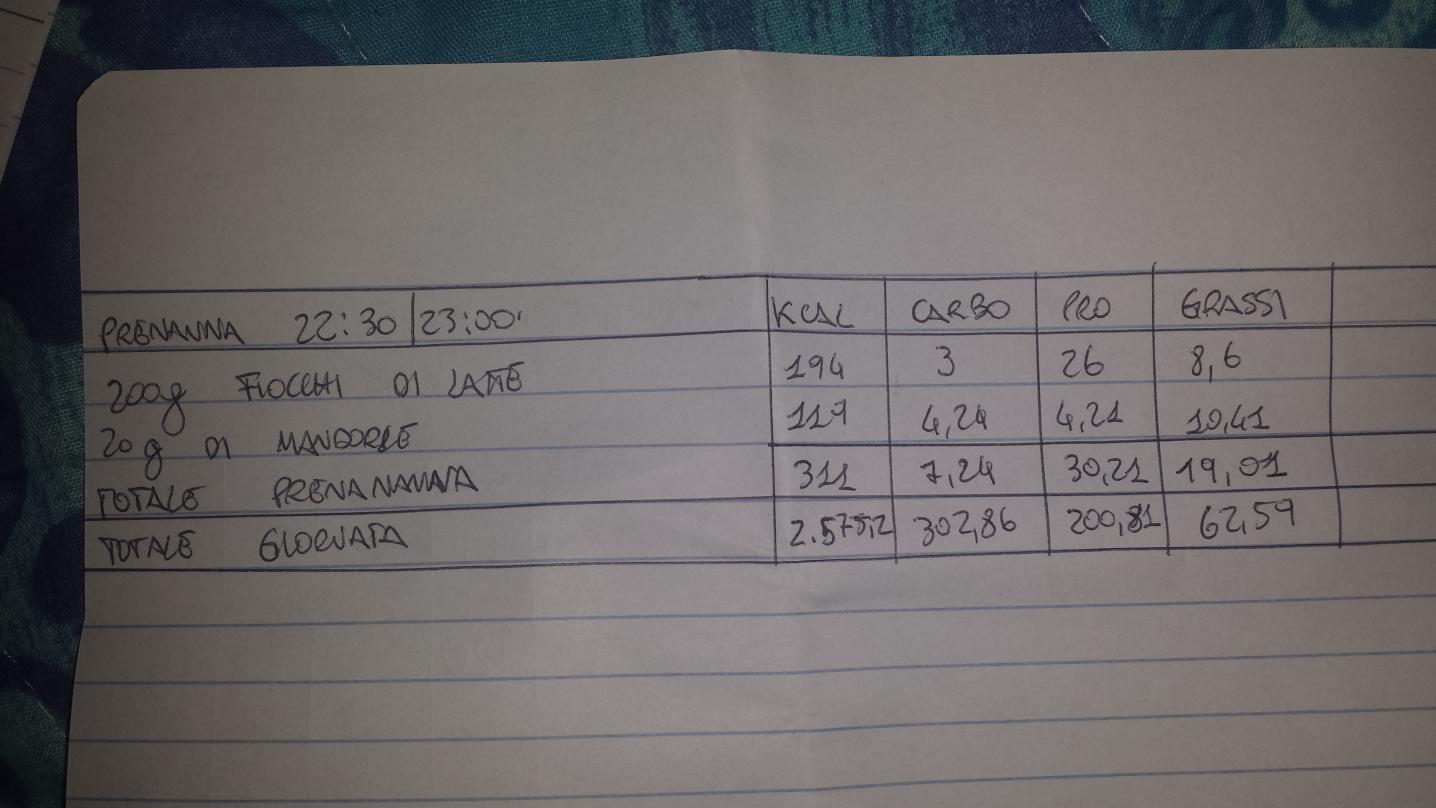 PRENANNA 22:30 | 23:00 KCAL CARBO PRO GRASSI
200g FIOCCHI DI LATTE 194 3 26 8,6
20g DI MANDORLE 117 4,24 4,21 10,41
TOTALE PRENANANNA 311 7,24 30,21 19,01
TOTALE GIORNATA 2.575,2 302,86 200,81 62,59